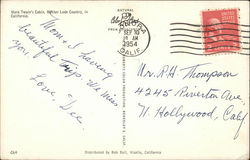 Mark Twain's Cabin, Mother Lode Country, in
California.
SONORA
SEP 10
AM
1954
CALIF.
Mom & I having
beautiful trip. We miss
you.
Love Dee
Mr. R.H. Thompson
4245 Riverton Ave
N. Hollywood, Calif
C64
Distributed by Bob Bolt, Visalia, California